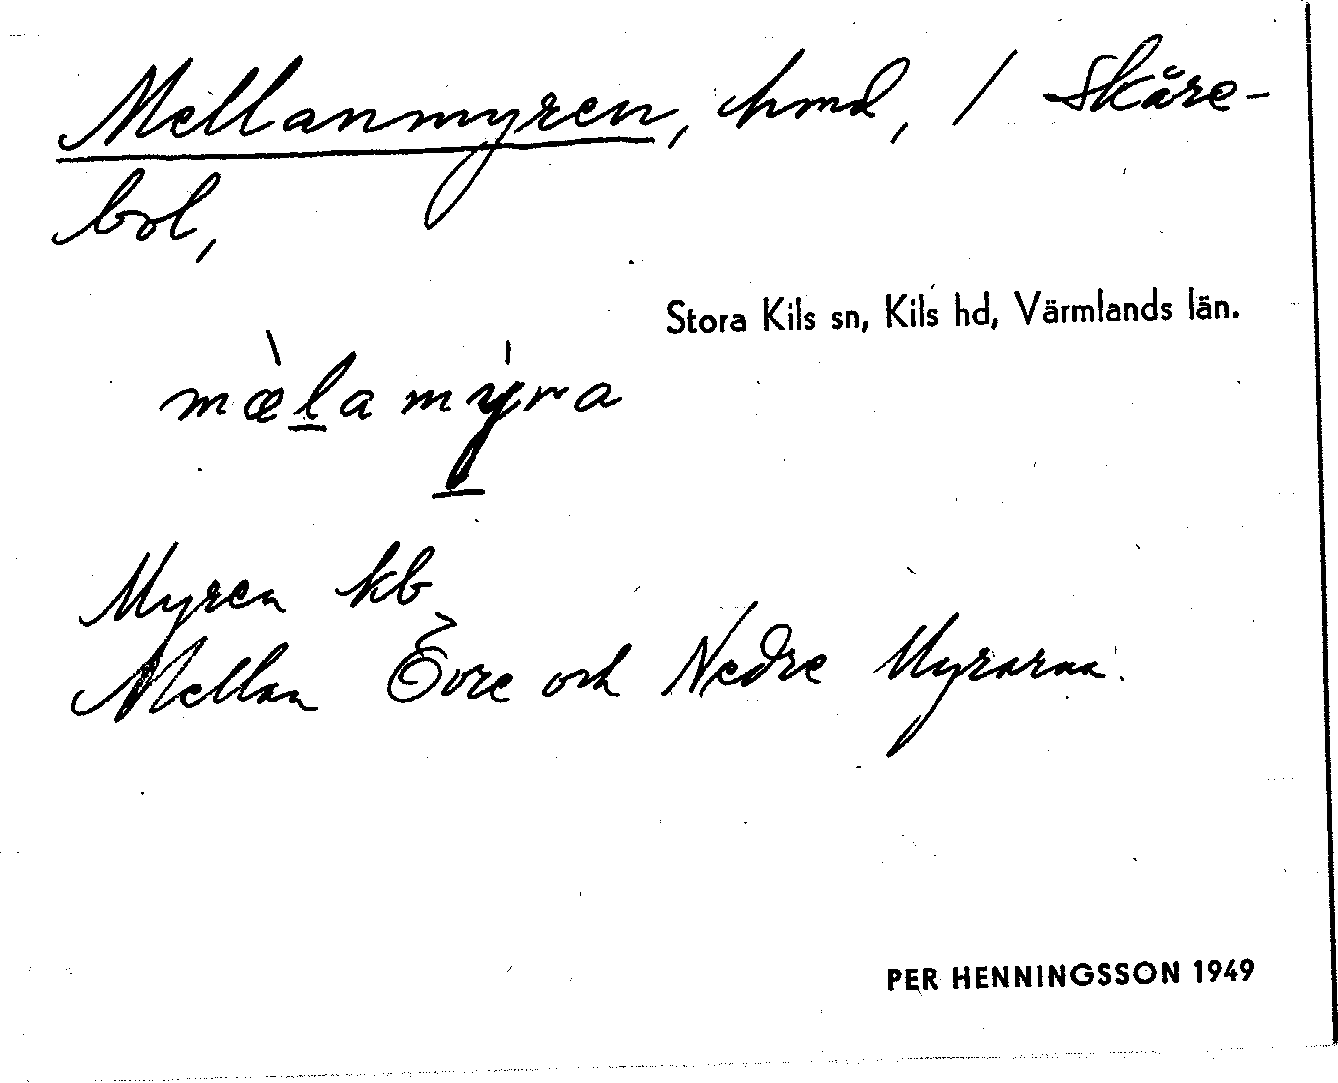 Mellanmyren, hmd, / Skåre-
bol,
Stora Kils sn, Kils hd, Värmlands län.
mæ̀l̲amýr̲a
Myren kb
Mellan Övre och Nedre Myrarna.
PER HENNINGSSON 1949